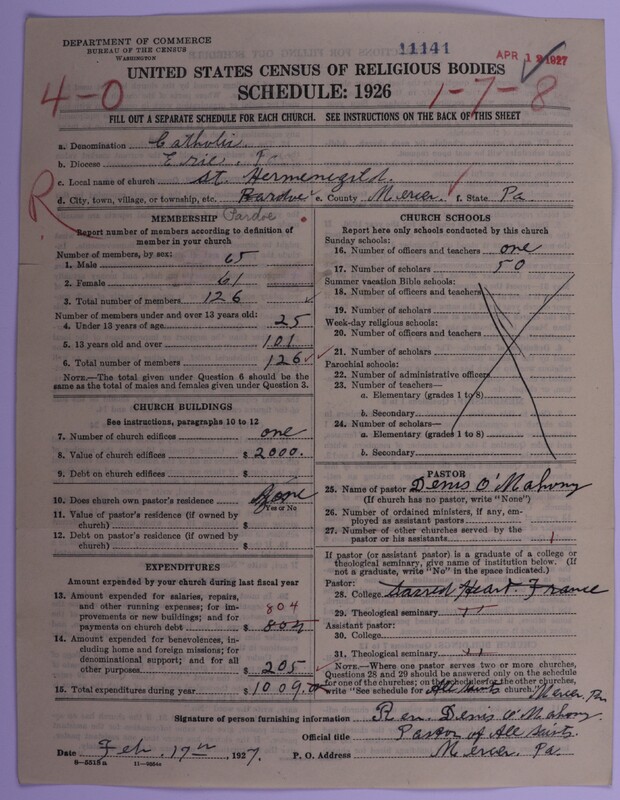 DEPARTMENT OF COMMERCE
BUREAU OF THE CENSUS
WASHINGTON
11141
APR 12 1927
UNITED STATES CENSUS OF RELIGIOUS BODIES
SCHEDULE: 1926
4-0
1-7-8
FILL OUT A SEPARATE SCHEDULE FOR EACH CHURCH. SEE INSTRUCTIONS ON THE BACK OF THIS SHEET
R
a. Denomination Catholic
b. Diocese Erie, Pa
c. Local name of church St. Hermenegild.
d. City, town, village, or township, etc. Pardoe e. County Mercer. f. State Pa
Pardoe
MEMBERSHIP
Report number of members according to definition of member in your church
Number of members, by sex:
1. Male 65
2. Female 61
3. Total number of members 126
Number of members under and over 13 years old:
4. Under 13 years of age 25
5. 13 years old and over 101
6. Total number of members 126
NOTE.—The total given under Question 6 should be the same as the total of males and females given under Question 3.
CHURCH BUILDINGS
See instructions, paragraphs 10 to 12
7. Number of church edifices one
8. Value of church edifices $ 2000.
9. Debt on church edifices $
10. Does church own pastor's residence
Yes or No
11. Value of pastor's residence (if owned by church) $
12. Debt on pastor's residence (if owned by church) $
EXPENDITURES
Amount expended by your church during last fiscal year
13. Amount expended for salaries, repairs, and other running expenses; for improvements or new buildings; and for payments on church debt $ 804
804
14. Amount expended for benevolences, including home and foreign missions; for denominational support; and for all other purposes $ 205
15. Total expenditures during year $ 1009.00
CHURCH SCHOOLS
Report here only schools conducted by this church
Sunday schools:
16. Number of officers and teachers one
17. Number of scholars 50
Summer vacation Bible schools:
18. Number of officers and teachers
19. Number of scholars
Week-day religious schools:
20. Number of officers and teachers
21. Number of scholars
Parochial schools:
22. Number of administrative officers
23. Number of teachers—
a. Elementary (grades 1 to 8)
b. Secondary
24. Number of scholars—
a. Elementary (grades 1 to 8)
b. Secondary
PASTOR
25. Name of pastor Denis O'Mahony
(If church has no pastor, write "None")
26. Number of ordained ministers, if any, employed as assistant pastors
27. Number of other churches served by the pastor or his assistants 1
If pastor (or assistant pastor) is a graduate of a college or theological seminary, give name of institution below. (If not a graduate, write "No" in the space indicated.)
Pastor:
28. College Sacred Heart. France
29. Theological seminary " "
Assistant pastor:
30. College
31. Theological seminary " "
NOTE.—Where one pastor serves two or more churches, Questions 28 and 29 should be answered only on the schedule for one of the churches; on the schedules for the other churches, write "See schedule for All Saints church." Mercer, Pa
Signature of person furnishing information Rev. Denis O'Mahony
Official title Pastor of All Saints.
Date Feb. 17th, 1927. P. O. Address Mercer, Pa.
8-5515a 11-9264c